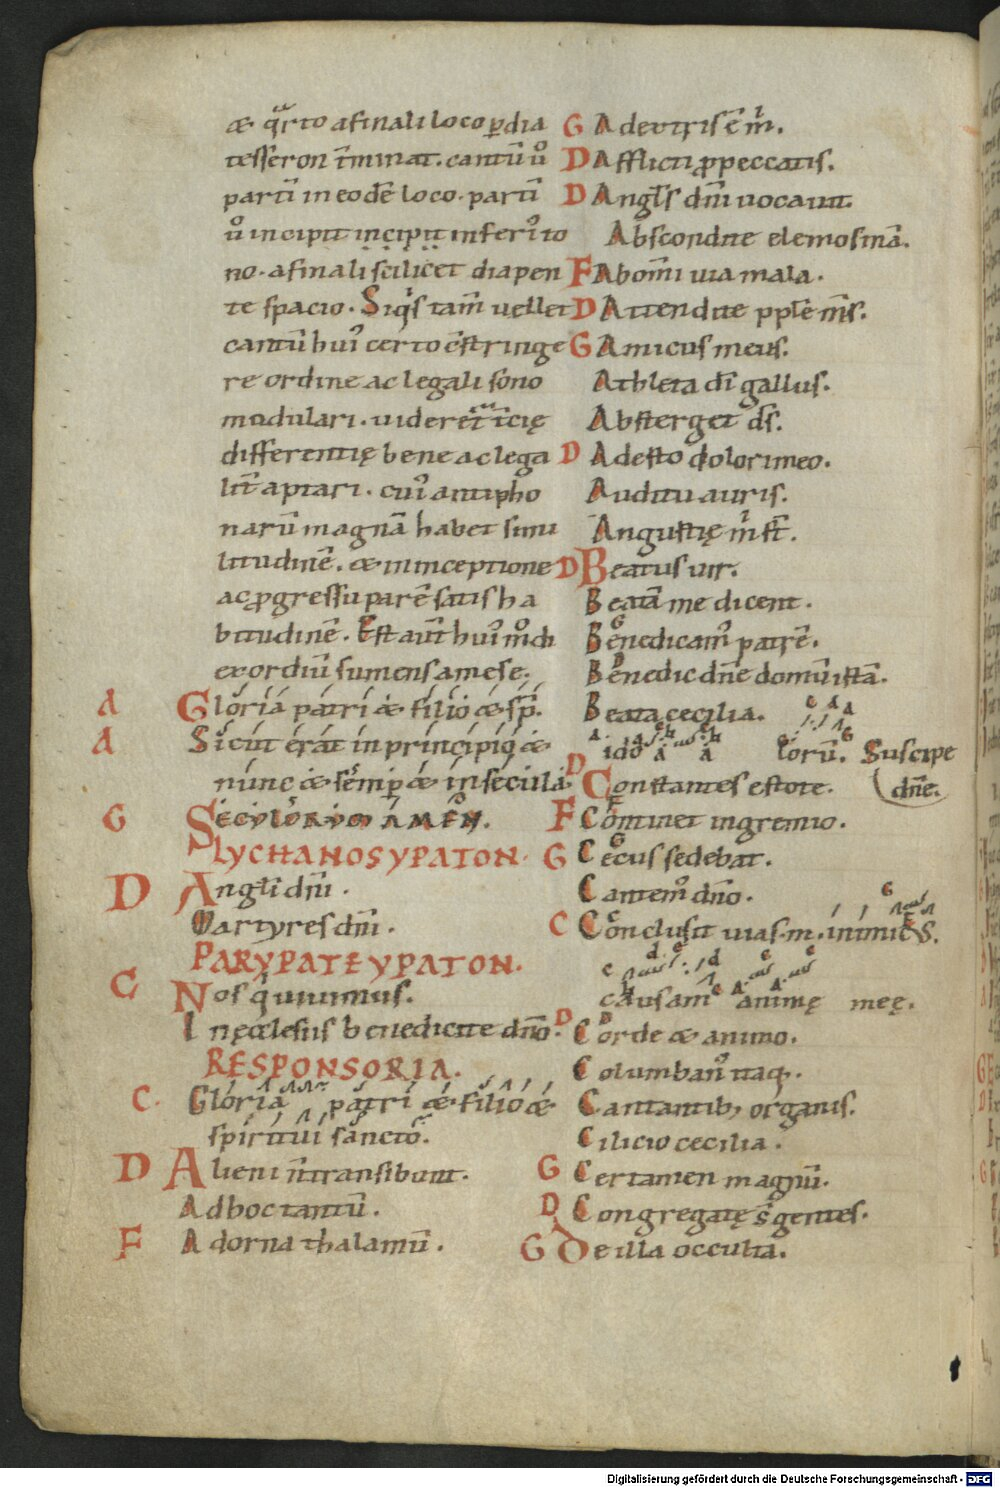 æ qrto a finali loco ꝑ dia
tesseron t̄minat. cantū u̾
partī in eodē loco. partī
u̾ incipit incipit inferi̾ to
no. a finali scilicet diapen
te spacio. Siq̇s tam̄ uellet
cantū hui̾ certo c̄stringe
re ordine ac legali sono
modulari. uideret̄ t̄cię
differentię bene ac lega
lit̄ aptari. cui̾ antipho
narū magnā habet simi
litudinē. æ in inceptione
ac ꝓgressu parē satis ha
bitudinē. Est aut̄ hui̾ mo̾di
exordiū sumens a mese.
A Gloria patri æ filio æ sp̄.
A Sicut erat in principio æ
nunc æ semꝑ æ in secula
G Seculorum AMEN.
LYCHANOS YPATON.
D Angl̄i dn̄i.
Martyres dn̄i.
PARYPATE YPATON.
C Nos q̇ uiuimus.
In ęcclesiis benedicite dn̄o.
RESPONSORIA.
C. Gloria patri æ filio æ
spiritui sancto.
D Alieni n̄ transibunt.
Ad hoc tantū.
F Adorna thalamū.
G A dextris ē m̄.
D Afflicti ꝓ peccatis.
D Angl̄s dn̄i uocauit.
Abscondite elemosinā.
F Abomi uia mala.
D Attendite pple m̄s.
G Amicus meus.
Athleta dī gallus.
Absterget d̄s.
D Adesto dolori meo.
Auditu auris.
Angustię m̄ st̄.
D Beatus uir.
Beatā me dicent.
Benedicam̾ patrē.
Benedic dn̄e domū istā.
Beata cecilia.
ido a a lorū. Suscipe
dn̄e.
D Constantes estote.
F Continet in gremio.
G Cęcus sedebat.
Cantem̾ dn̄o.
C Conclusit uias m. inimicus.
causam animę meę.
D Corde æ animo.
Columban̾ itaq;.
Cantantib; organis.
Cilicio cecilia.
G Certamen magnū.
D Congregatę s̄ gentes.
G De illa occulta.
Digitalisierung gefördert durch die Deutsche Forschungsgemeinschaft - DFG